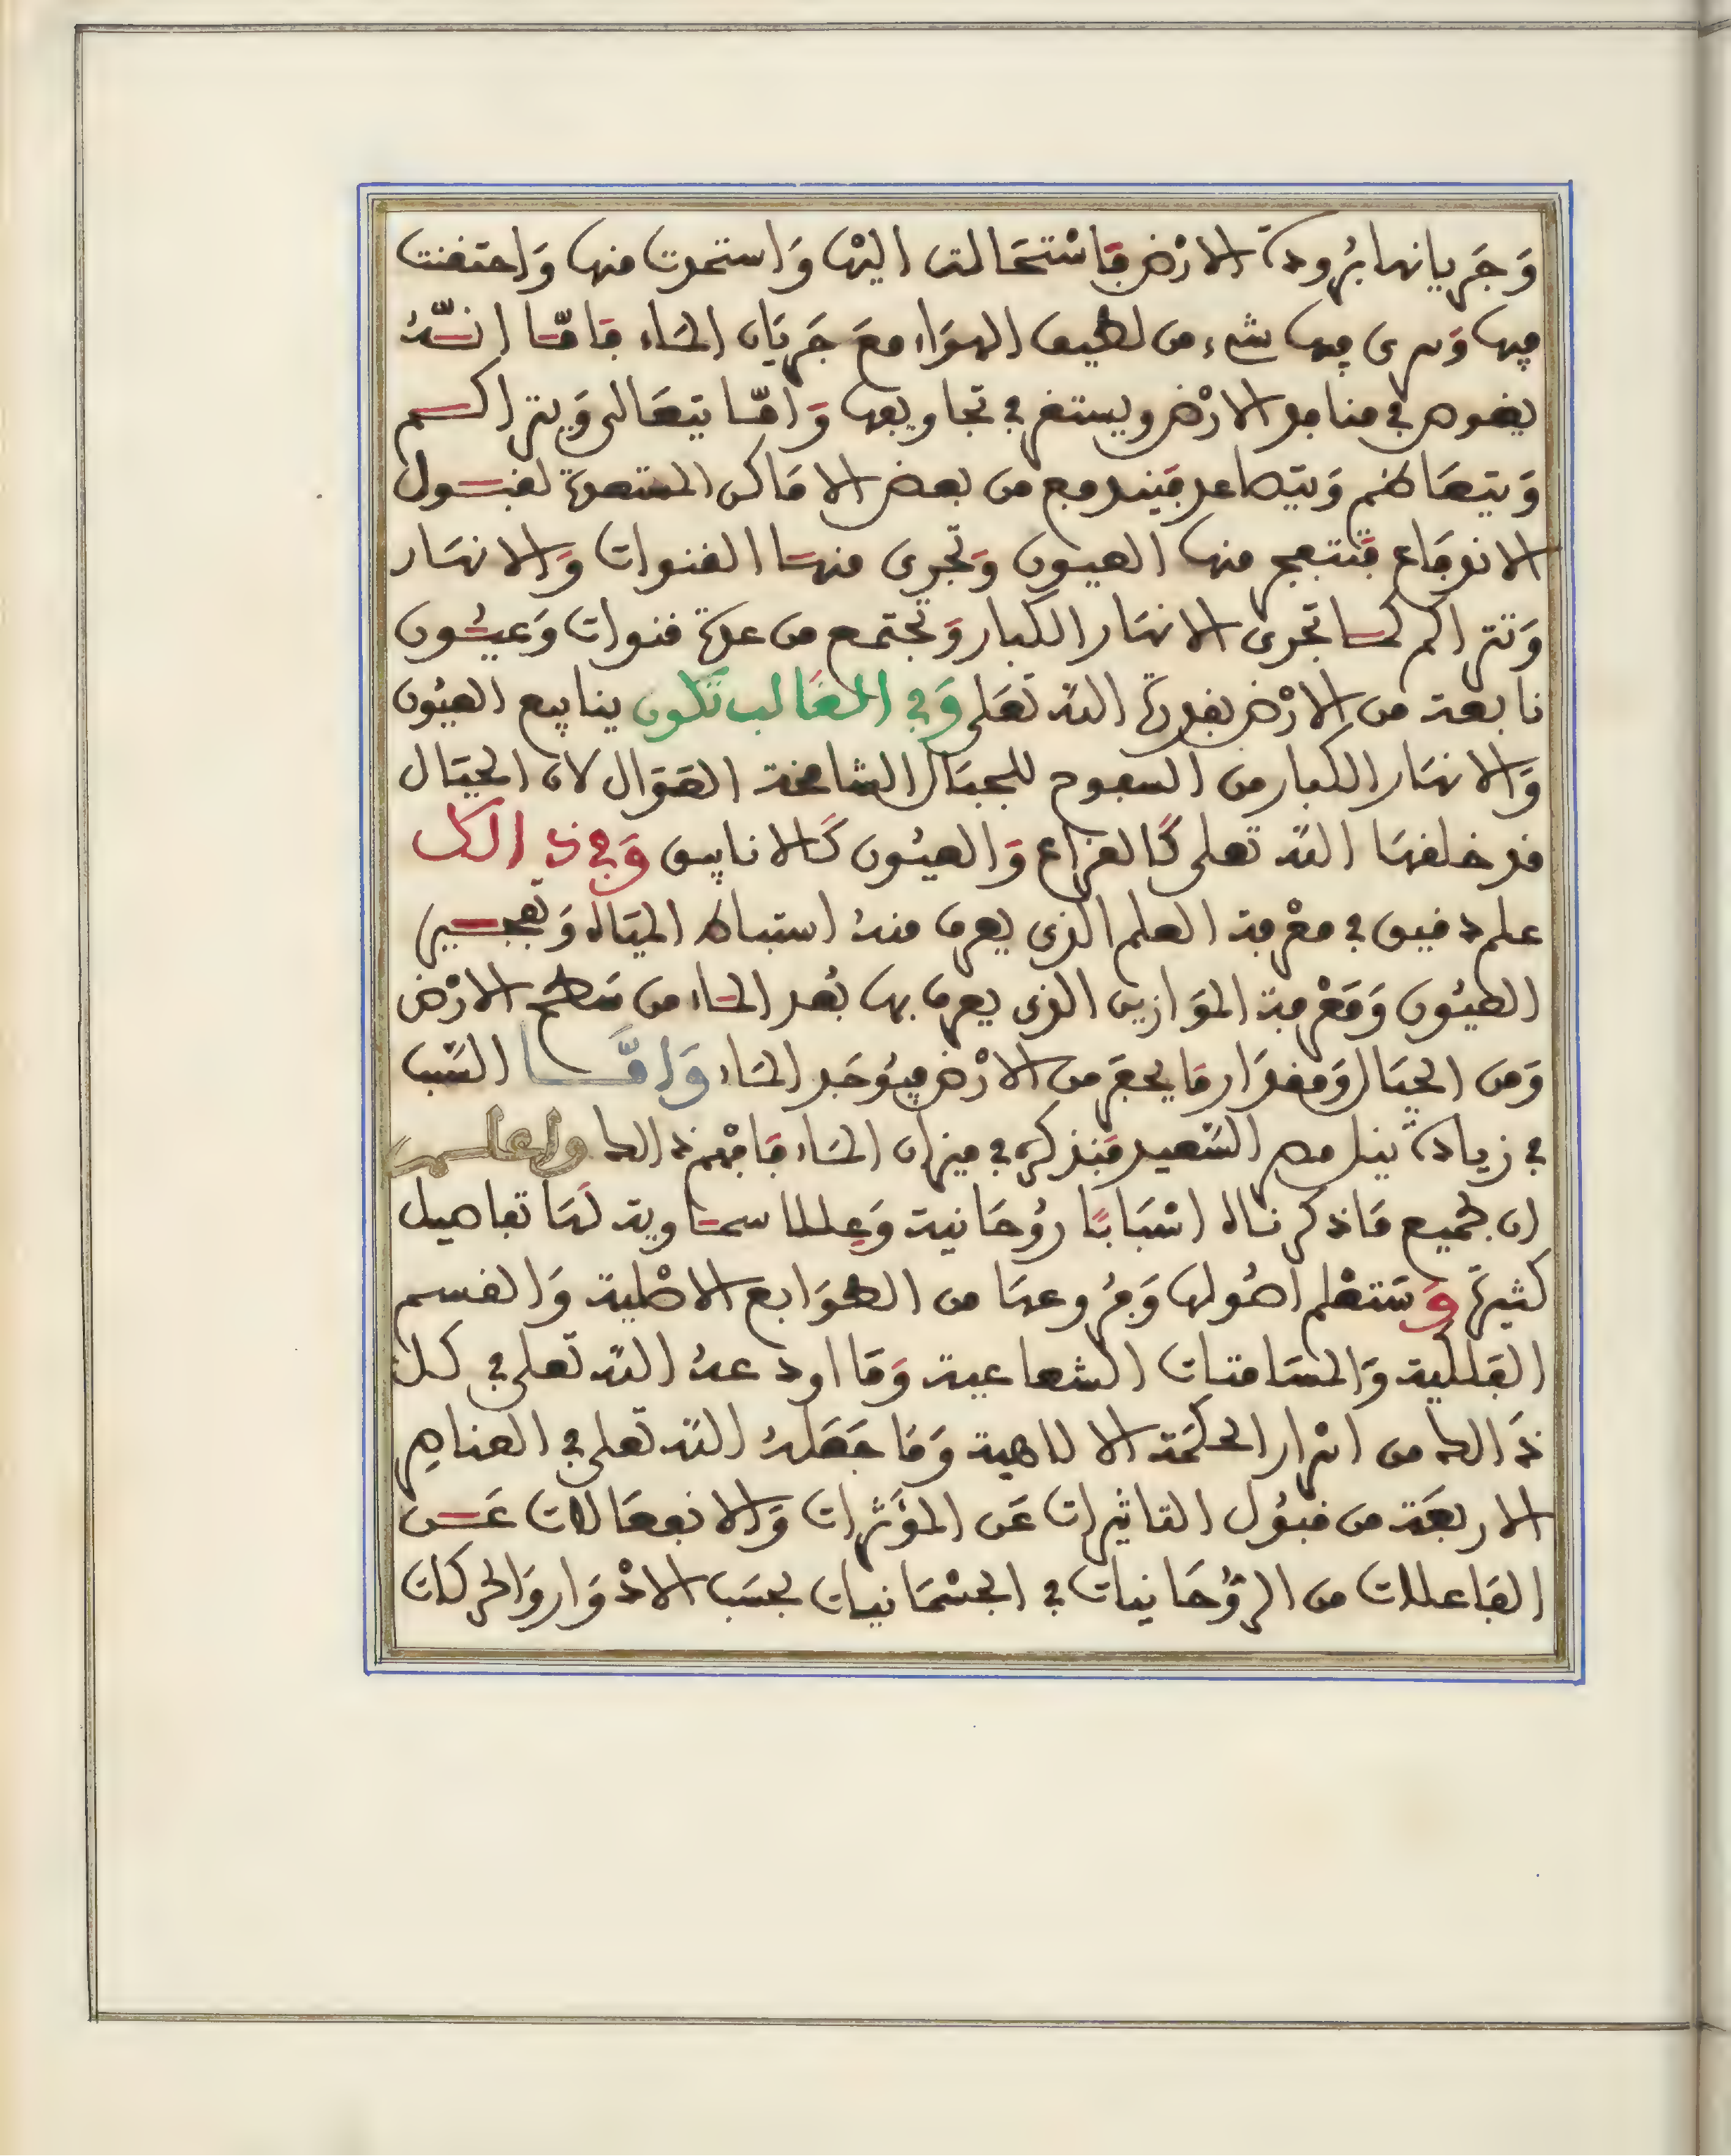 وَجَريانها بُرودة الارْض فَاسْتحَالت اليْها وَاستمدت منها وَاحتقنت
فيها وَسرى فيها شىء من لطيف الهوَاء معَ جَرَيَان المَاء فَامّا انّهُ
يغوص في منافد الارْض ويستقر في تجاويفها وَامّا يتعَالى وَيتراكم
وَيتعَاظم وَيتصَاعد فيَندفع من بعض الامَاكن المستعدة لقبول
الاندفَاع فتَنفجر منها العيون وَتجرى منهَا القنوات وَالانهَار
وَتتراكم كما تجرى الانهَار الكبار وَتجتمع من عدة قنوات وَعيُون
نابعة من الارْض بقدرة اللّه تعَلى وَفي الغَالب تَكون ينابيع العيُون
وَالانهَار الكبار من السفوح للجبَال الشامخة الطوَال لان الجبَال
قد خلقهَا اللّه تعلى كَالقراع وَالعيُون كَالانابيق وَفي ذالك
علم دقيق في معْرفة العلم الذى يعرف منهُ استنباط الميَاه وَتفجير
العيُون وَمَعْرفة الموَازين الذى يعرف بها بُعد المَاء من سَطح الارْض
وَمن الجبَال وَمقدَار مَا يحفر من الارْض فيُوجَد المَاء وَامَّا السّبب
في زيادة نيل مصر السّعيد فنَذكره في ميزان المَاء فَافْهم ذالك واعلم
ان لجميع مَا ذكرناه اسْبَابًا رُوحَانية وَعِللا سمَاوية لهَا تفاصيل
كثيرة وَسَتعْلم اصُولها وَفرُوعهَا من الطوَابع الاصْلية وَالقسم
الفلكية وَالمسَامتات الشعاعية وَمَا اودعهُ اللّه تعلى في كل
ذَالك من اسْرار الحكمَة الالاهية وَمَا جَعَلهُ اللّه تعلى في العناصِر
الاربعَة من قبُول التاثيرات عَن المؤَثرات وَالانفعَالات عَن
الفَاعلات من الرُّوحَانيات في الجسْمَانيات بحسَب الادْوَار وَالحركات